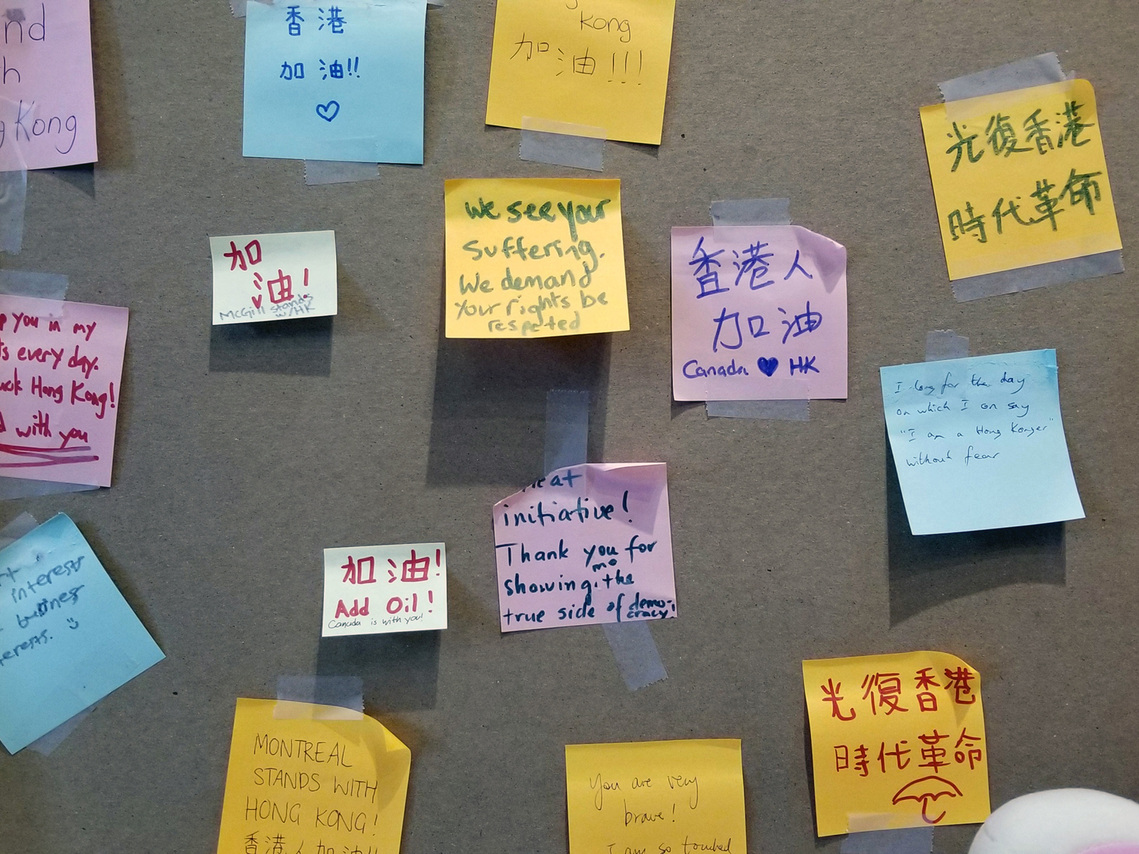 nd
h
Kong
香港
加油!!
Kong
加油!!!
光復香港
時代革命
加
油!
McGill stands
w/HK
We see your
suffering.
We demand
Your rights be
respeted
香港人
加油
Canada ♥ HK
p you in my
ts every day.
uck Hong Kong!
with you
I long for the day
on which I can say
"I am a Hong Konger"
without fear
eat
initiative!
Thank you for
showing me the
true side of democracy!
加油!
Add Oil!
Canada is with you!
interests
business
terests.
光復香港
時代革命
MONTREAL
STANDS WITH
HONG KONG!
香港人加油!!
You are very
brave!
I am so touched